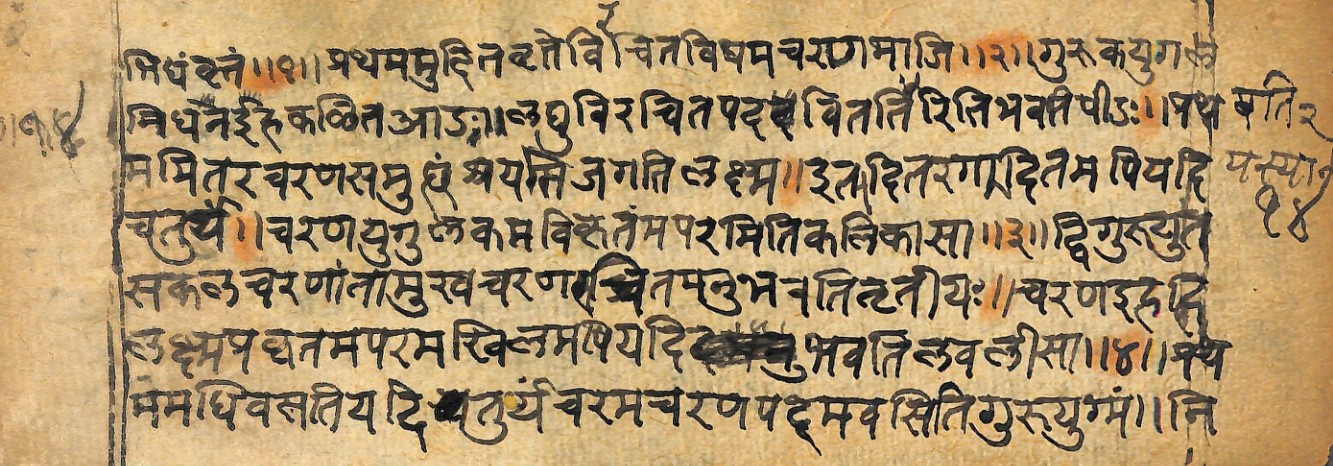 भिधं वृत्तं ॥१॥ प्रथममुदितवृत्ते विरचितविषमचरणभाजि ॥२॥ गुरुकयुगल
निधन इह कलित आङा ॥ लघुविरचितपद विततिरिति भवति पीडः ॥ प्रथ
ममितरचरणसमुत्थं श्रयति जगति लक्ष्म ॥ इतरदितरगदितमपि यदि
च तुर्यं ॥ चरणयुगुलकमविकृतमपरमिति कलिका सा ॥३॥ द्विगुरुयुत
सकलचरणांता मुखचरणरचितमनुभवति तृतीयः ॥ चरण इह हि
लक्ष्म प्रकृतमपरमखिलमपि यदि भवति लवली सा ॥४॥ प्रथ
ममधिवसति यदि तुर्यं चरमचरणपदमवसितिगुरुयुग्मं ॥ नि
१४
१४